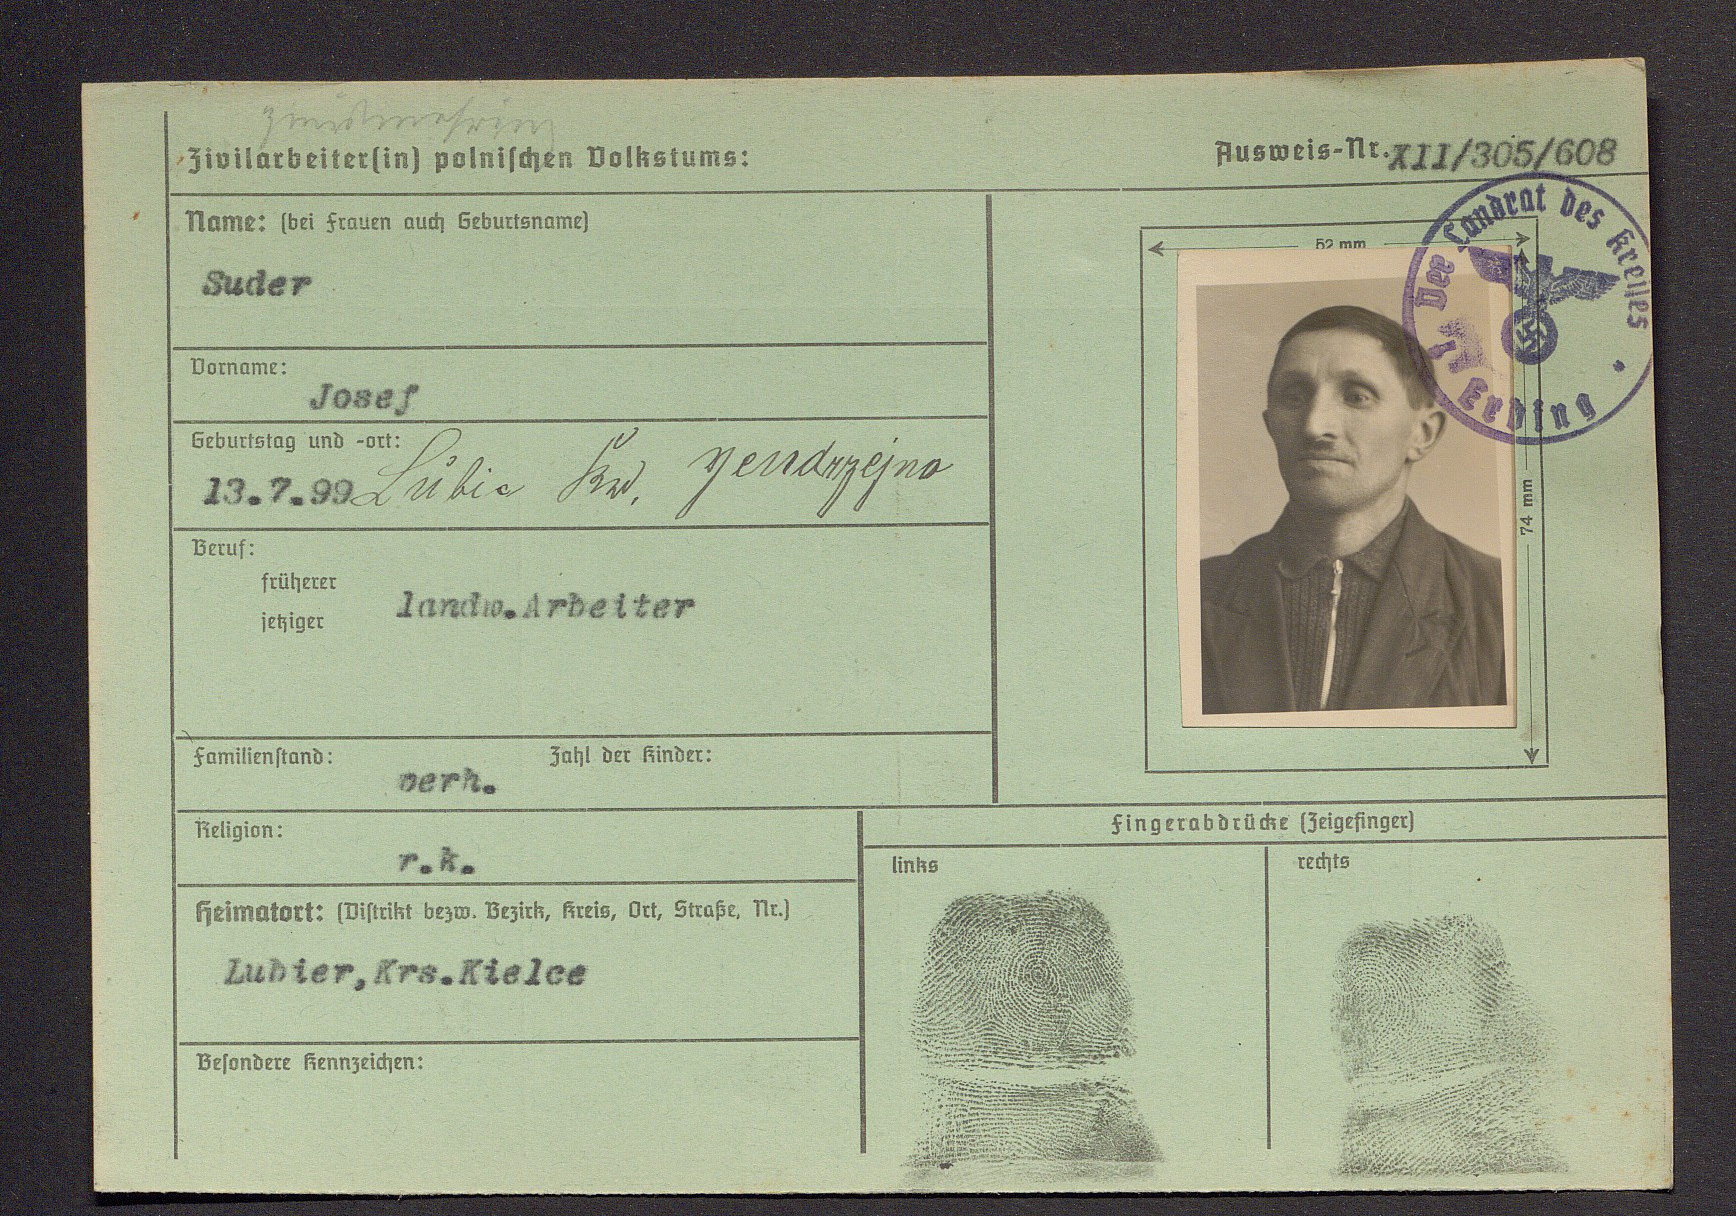 Zivilarbeiter(in) polnischen Volkstums:
Ausweis-Nr. XII/305/608
Name: (bei Frauen auch Geburtsname)
Suder
Vorname:
Josef
Geburtstag und -ort:
13.7.99 Lubic Kr.
Beruf:
früherer
jetziger
landw.Arbeiter
Familienstand:
Zahl der Kinder:
verh.
Religion:
r.k.
Heimatort: (Distrikt bezw. Bezirk, Kreis, Ort, Straße, Nr.)
Lubier,Krs.Kielce
Besondere Kennzeichen:
52 mm
74 mm
Der Landrat des Kreises
Erding
Fingerabdrücke (Zeigefinger)
links
rechts